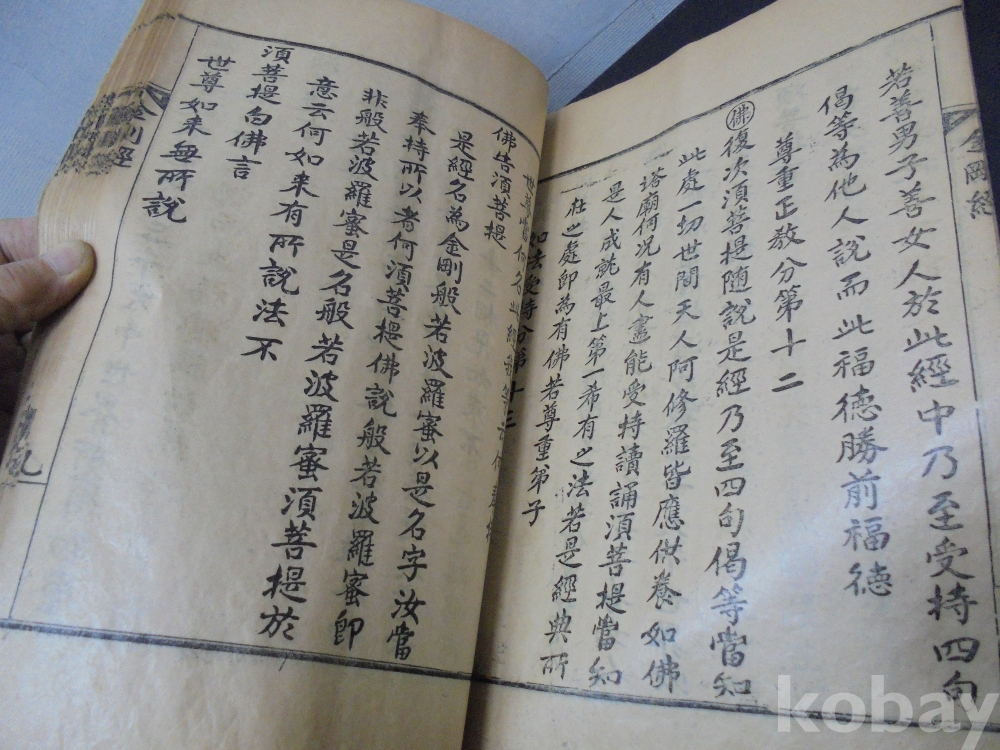 金岡經
若善男子善女人於此經中乃至受持四句
偈等為他人說而此福德勝前福德
尊重正教分第十二
佛復次須菩提隨說是經乃至四句偈等當知
此處一切世間天人阿修羅皆應供養如佛
塔廟何况有人盡能受持讀誦須菩提當知
是人成就最上第一希有之法若是經典所
在之處即為有佛若尊重弟子
如法受持分第十三
世尊當何名此經我等云何
佛告須菩提
是經名為金剛般若波羅蜜以是名字汝當
奉持所以者何須菩提佛說般若波羅蜜即
非般若波羅蜜是名般若波羅蜜須菩提於
意云何如来有所說法不
須菩提白佛言
世尊如来無所說
金刂經
九
kobay